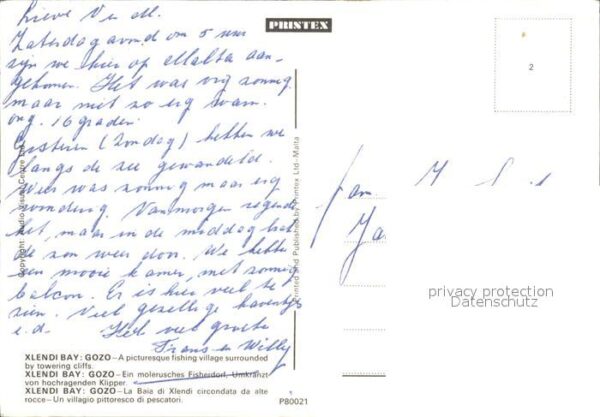 PRINTEX
Lieve V en M.
Zaterdagavond om 5 uur
zijn we hier op Malta aan-
gekomen. Het was vrij zonnig
maar niet zo erg warm.
ong. 16 graden.
Gisteren (Zondag) hebben we
langs de zee gewandeld.
Weer was zonnig maar erg
winderig. Vanmorgen regende
het, maar in de middag brak
de zon weer door. We hebben
een mooie kamer, met zonnig
balcon. Er is hier veel te
zien. Veel gezellige haventjes
e.d. Heel veel groeten
Frans en Willy
2
Fam.
privacy protection
Datenschutz
Copyright Audio Visual Centre Ltd.
Printed and Published by Printex Ltd-Malta
XLENDI BAY: GOZO – A picturesque fishing village surrounded
by towering cliffs.
XLENDI BAY: GOZO – Ein molerusches Fisherdorf, Umkränzt
von hochragenden Klipper.
XLENDI BAY: GOZO – La Baia di Xlendi circondata da alte
rocce – Un villagio pittoresco di pescatori.
P80021